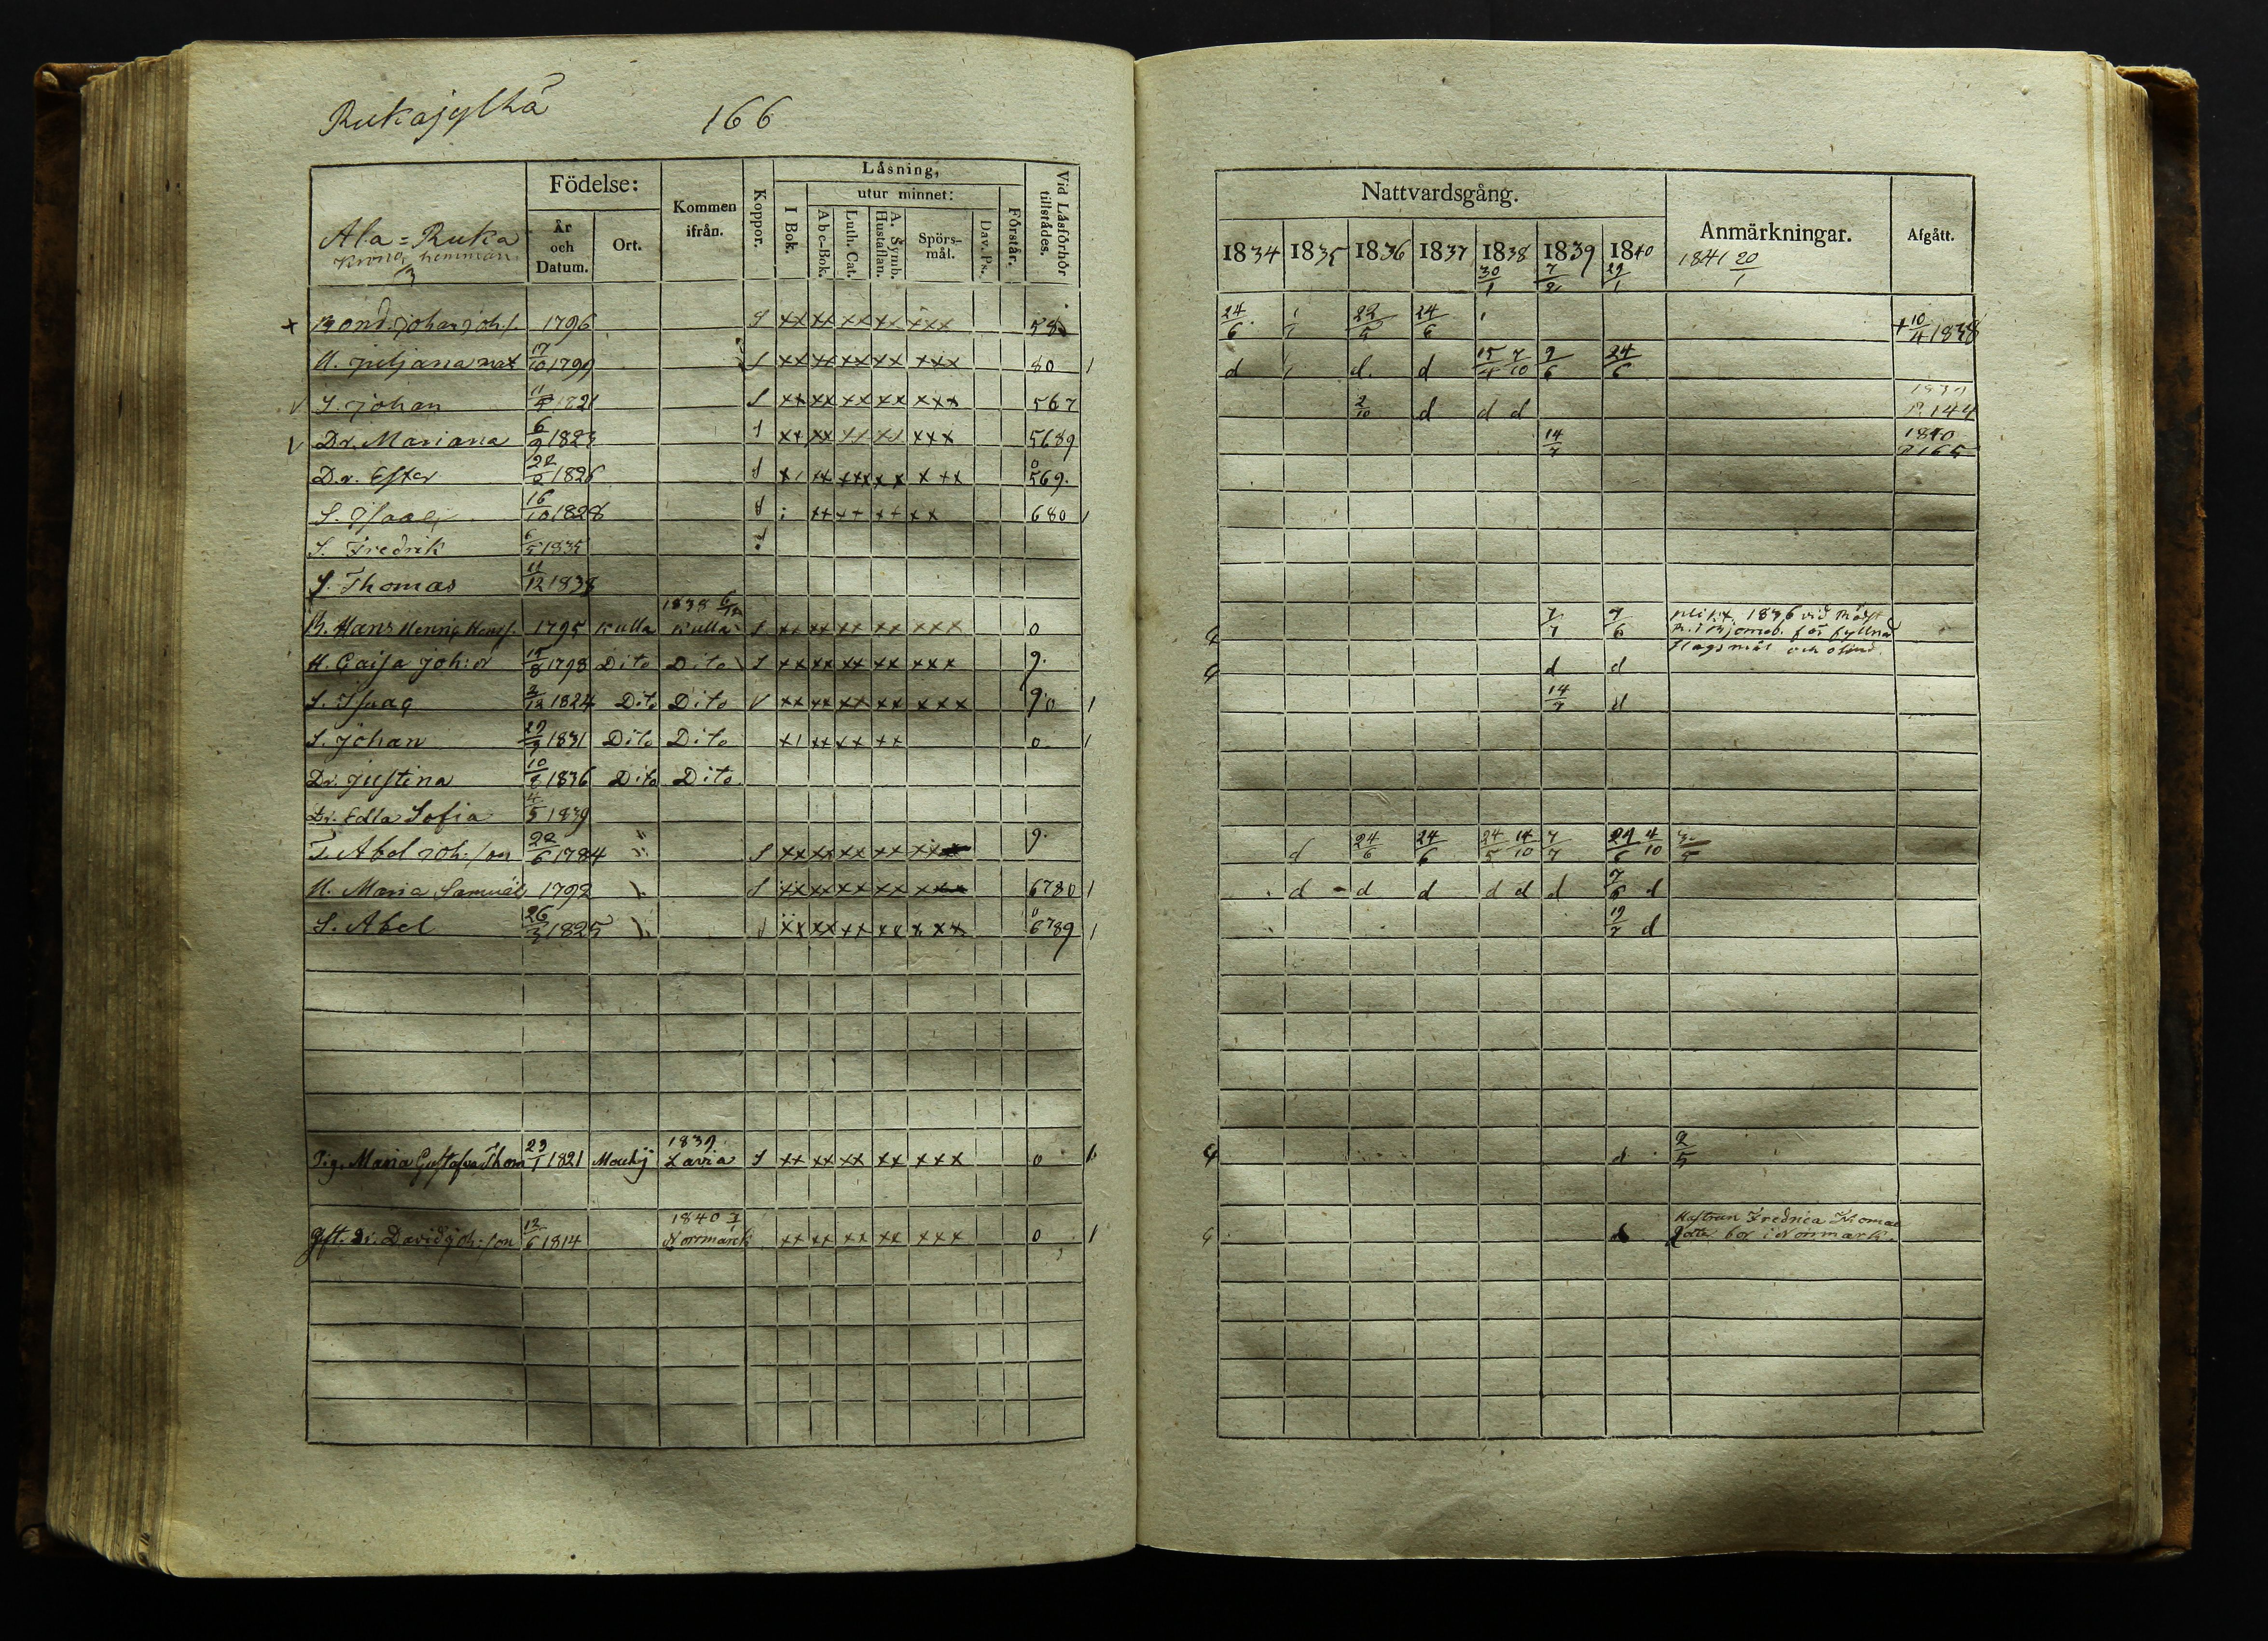 Rukajylhä 166
Födelse: Kommen ifrån. Koppor. Läsning, Vid Läsförhör tillstädes.
År och Datum. Ort. I Bok. utur minnet: Förstår.
Abc-Bok. Luth. Cat. A. Symb. Hustaflan. Spörsmål. Dav. Ps.
Ala=Ruka
Krono hemman
Bond. Johan Joh.s. 1796 S xx xx xx xx xxx 58
H. Juljana mat 17/10 1799 S xx xx xx xx xxx 80 1
S. Johan 1821 S xx xx xx xx xxx 567
Dr. Mariana 6/9 1823 xx xx xx xxx 5689
Dr. Ester 22/2 1826 569.
S. Isaac 16/10 1828 680 1
S. Fredrik 6/5 1835
S. Thomas 11/12 1838
1838 6/12
B. Hans Henric Hens. 1795 Kulla Kulla S xx xx xx xx xxx 0
H. Caisa Joh:r 15/8 1798 Dito Dito S xx xx xx xx xxx 9.
S. Isaac 2/12 1824 Dito Dito V xx xx xx xx xxx 90 1
S. Johan 29/9 1831 Dito Dito x1 xx xx xx 0 1
Dr. Justina 10/8 1836 Dito Dito
Dr. Edla Sofia 4/5 1839
T. Abel Joh:son 22/6 1784 S xx xx xx xx 9.
H. Maria Samuels 1792 S xx xx xx xx 6780 1
S. Abel 26/3 1825 xx xx xx xx xxx 6789 1
1839
Pig. Maria Gustafva Thom 23/1 1821 Lavia S xx xx xx xx xxx 0 1
1840
gft. Dr. David Joh:son 12/6 1814 Norrmarck xx xx xx xx xxx 0 1
Nattvardsgång. Anmärkningar. Afgått.
1834 1835 1836 1837 1838 1839 1840 1841 20/1
30/1 7/2 29/1
24/6 22/5 24/6 +10/4 1838
d d. d 15/4 7/10 9/6 24/6
2/10 d d d P. 144
14/7 1840 P 165
7/7 7/6 plikt. 1836 vid
för fyllna
slagsmål och
d d
14/7 d
d 24/6 24/6 24/5 14/10 7/7 4/10
d d d d d d 7/6 d
19/7 d
d 2/5
Hustrun Fredrica Thomae
d dotter bor i Norrmark.